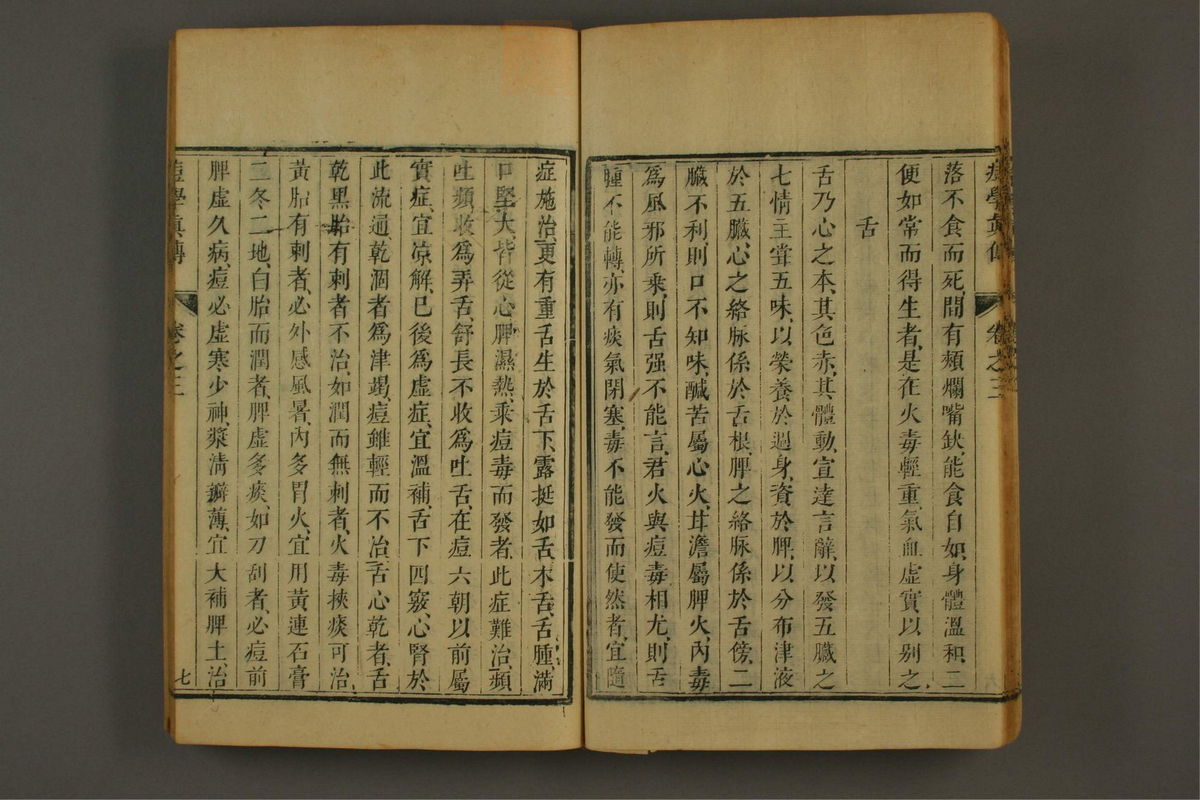 痘學眞傳 卷之三
落不食而死、間有頰爛嘴缺、能食自如、身體溫和、二
便如常而得生者、是在火毒輕重、氣血虛實、以别之
舌
舌乃心之本、其色赤、其體動、宣達言辭、以發五臟之
七情主甞五味、以榮養於週身、資於脾、以分布津液
於五臟、心之絡脉係於舌根、脾之絡脉係於舌傍、二
臟不利、則口不知味、醎苦屬心火、甘澹屬脾火、内毒
爲風邪所乘、則舌强不能言、君火與痘毒相尤、則舌
腫不能轉、亦有痰氣閉塞、毒不能發而使然者、宜隨
症施治、更有重舌生於舌下、露挺如舌、木舌、舌腫、滿
口堅大、皆從心脾濕熱、乘痘毒而發者、此症難治、頻
吐頻收爲弄舌、舒長不收爲吐舌、在痘六朝以前屬
實症、宜凉解、已後爲虛症、宜溫補、舌下四竅、心腎於
此流通、乾涸者爲津竭、痘雖輕而不治、舌心乾者、舌
乾黑胎有刺者不治、如潤而無刺者、火毒挾痰可治
黃胎有刺者、必外感風暑、内多胃火、宜用黃連石膏
二冬二地、白胎而潤者、脾虛多痰、如刀刮者、必痘前
脾虛久病、痘必虛寒少神、漿淸瓣薄、宜大補脾土、治
痘學眞傳 卷之三 七